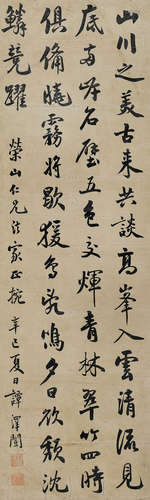 山川之美古來共談高峯入雲清流見
底兩岸石壁五色交輝青林翠竹四時
俱備曉霧將歇猿鳥亂鳴夕日欲頹沈
鱗競躍
榮山仁兄法家正挽辛巳夏日譚澤闓